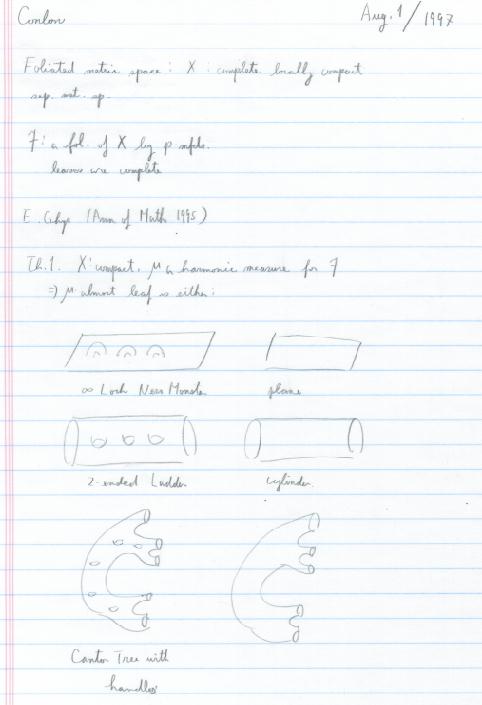 Conlon
Aug. 1 / 1997
Foliated metric space : X : complete locally compact
sep. met. sp.
F : a fol. of X by p mfds.
leaves are complete
E. Ghys (Ann of Math 1995)
Th.1. X compact, μ a harmonic measure for F
⇒ μ almost leaf is either :
∞ Loch Ness Monster
plane
2-ended Ladder
cylinder
Cantor Tree with
handles